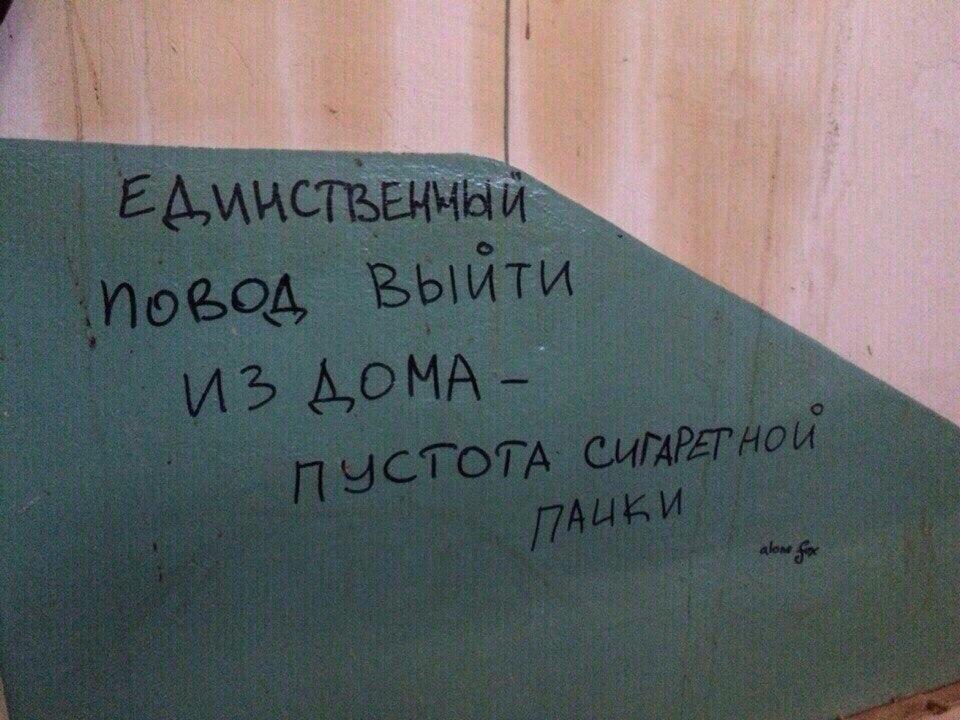 ЕДИНСТВЕННЫЙ
ПОВОД ВЫЙТИ
ИЗ ДОМА -
ПУСТОТА СИГАРЕТНОЙ
ПАЧКИ
alone fox